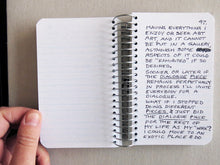 97.
HAVING EVERYTHING I
ENJOY OR SEEK ABT
ART, AND IT CANNOT
BE PUT IN A GALLERY,
ALTHOUGH SOME
ASPECTS OF IT COULD
BE "EXHIBITED" IF SO
DESIRED.
SOONER OR LATER IF
THE DIALOGUE PIECE
REMAINS PERPETUALLY
IN PROCESS I'LL INVITE
EVERYBODY FOR A
DIALOGUE.
WHAT IF I STOPPED
DOING DIFFERENT
PIECES & JUST DID
THE DIALOGUE PIECE
FOR THE REST OF
MY LIFE AS MY "WORK"?
I COULD MOVE TO AN
EXOTIC PLACE & DO